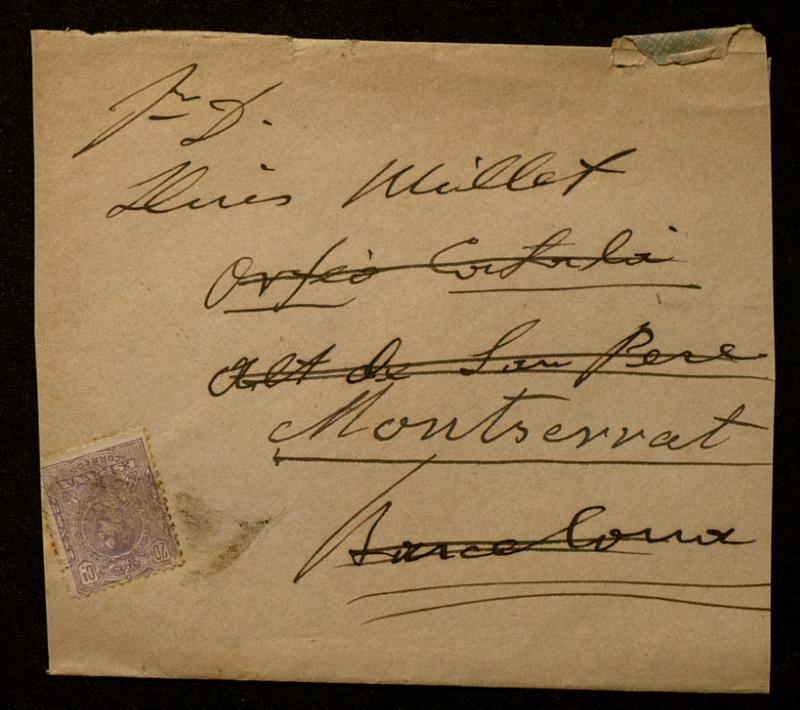 Sr D.
Lluis Millet
Orfeó Català
Alt de San Pere
Montserrat
Barcelona
CORREOS